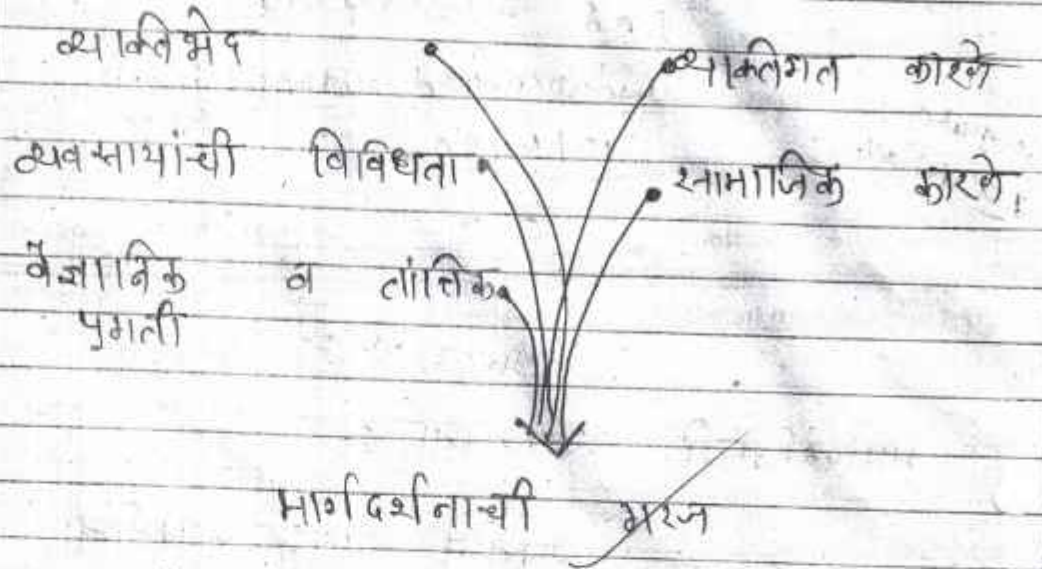 व्यक्तिभेद
व्यक्तिगत कारणे
व्यवसायांची विविधता
सामाजिक कारणे
वैज्ञानिक व तांत्रिक
प्रगती
मार्गदर्शनाची गरज